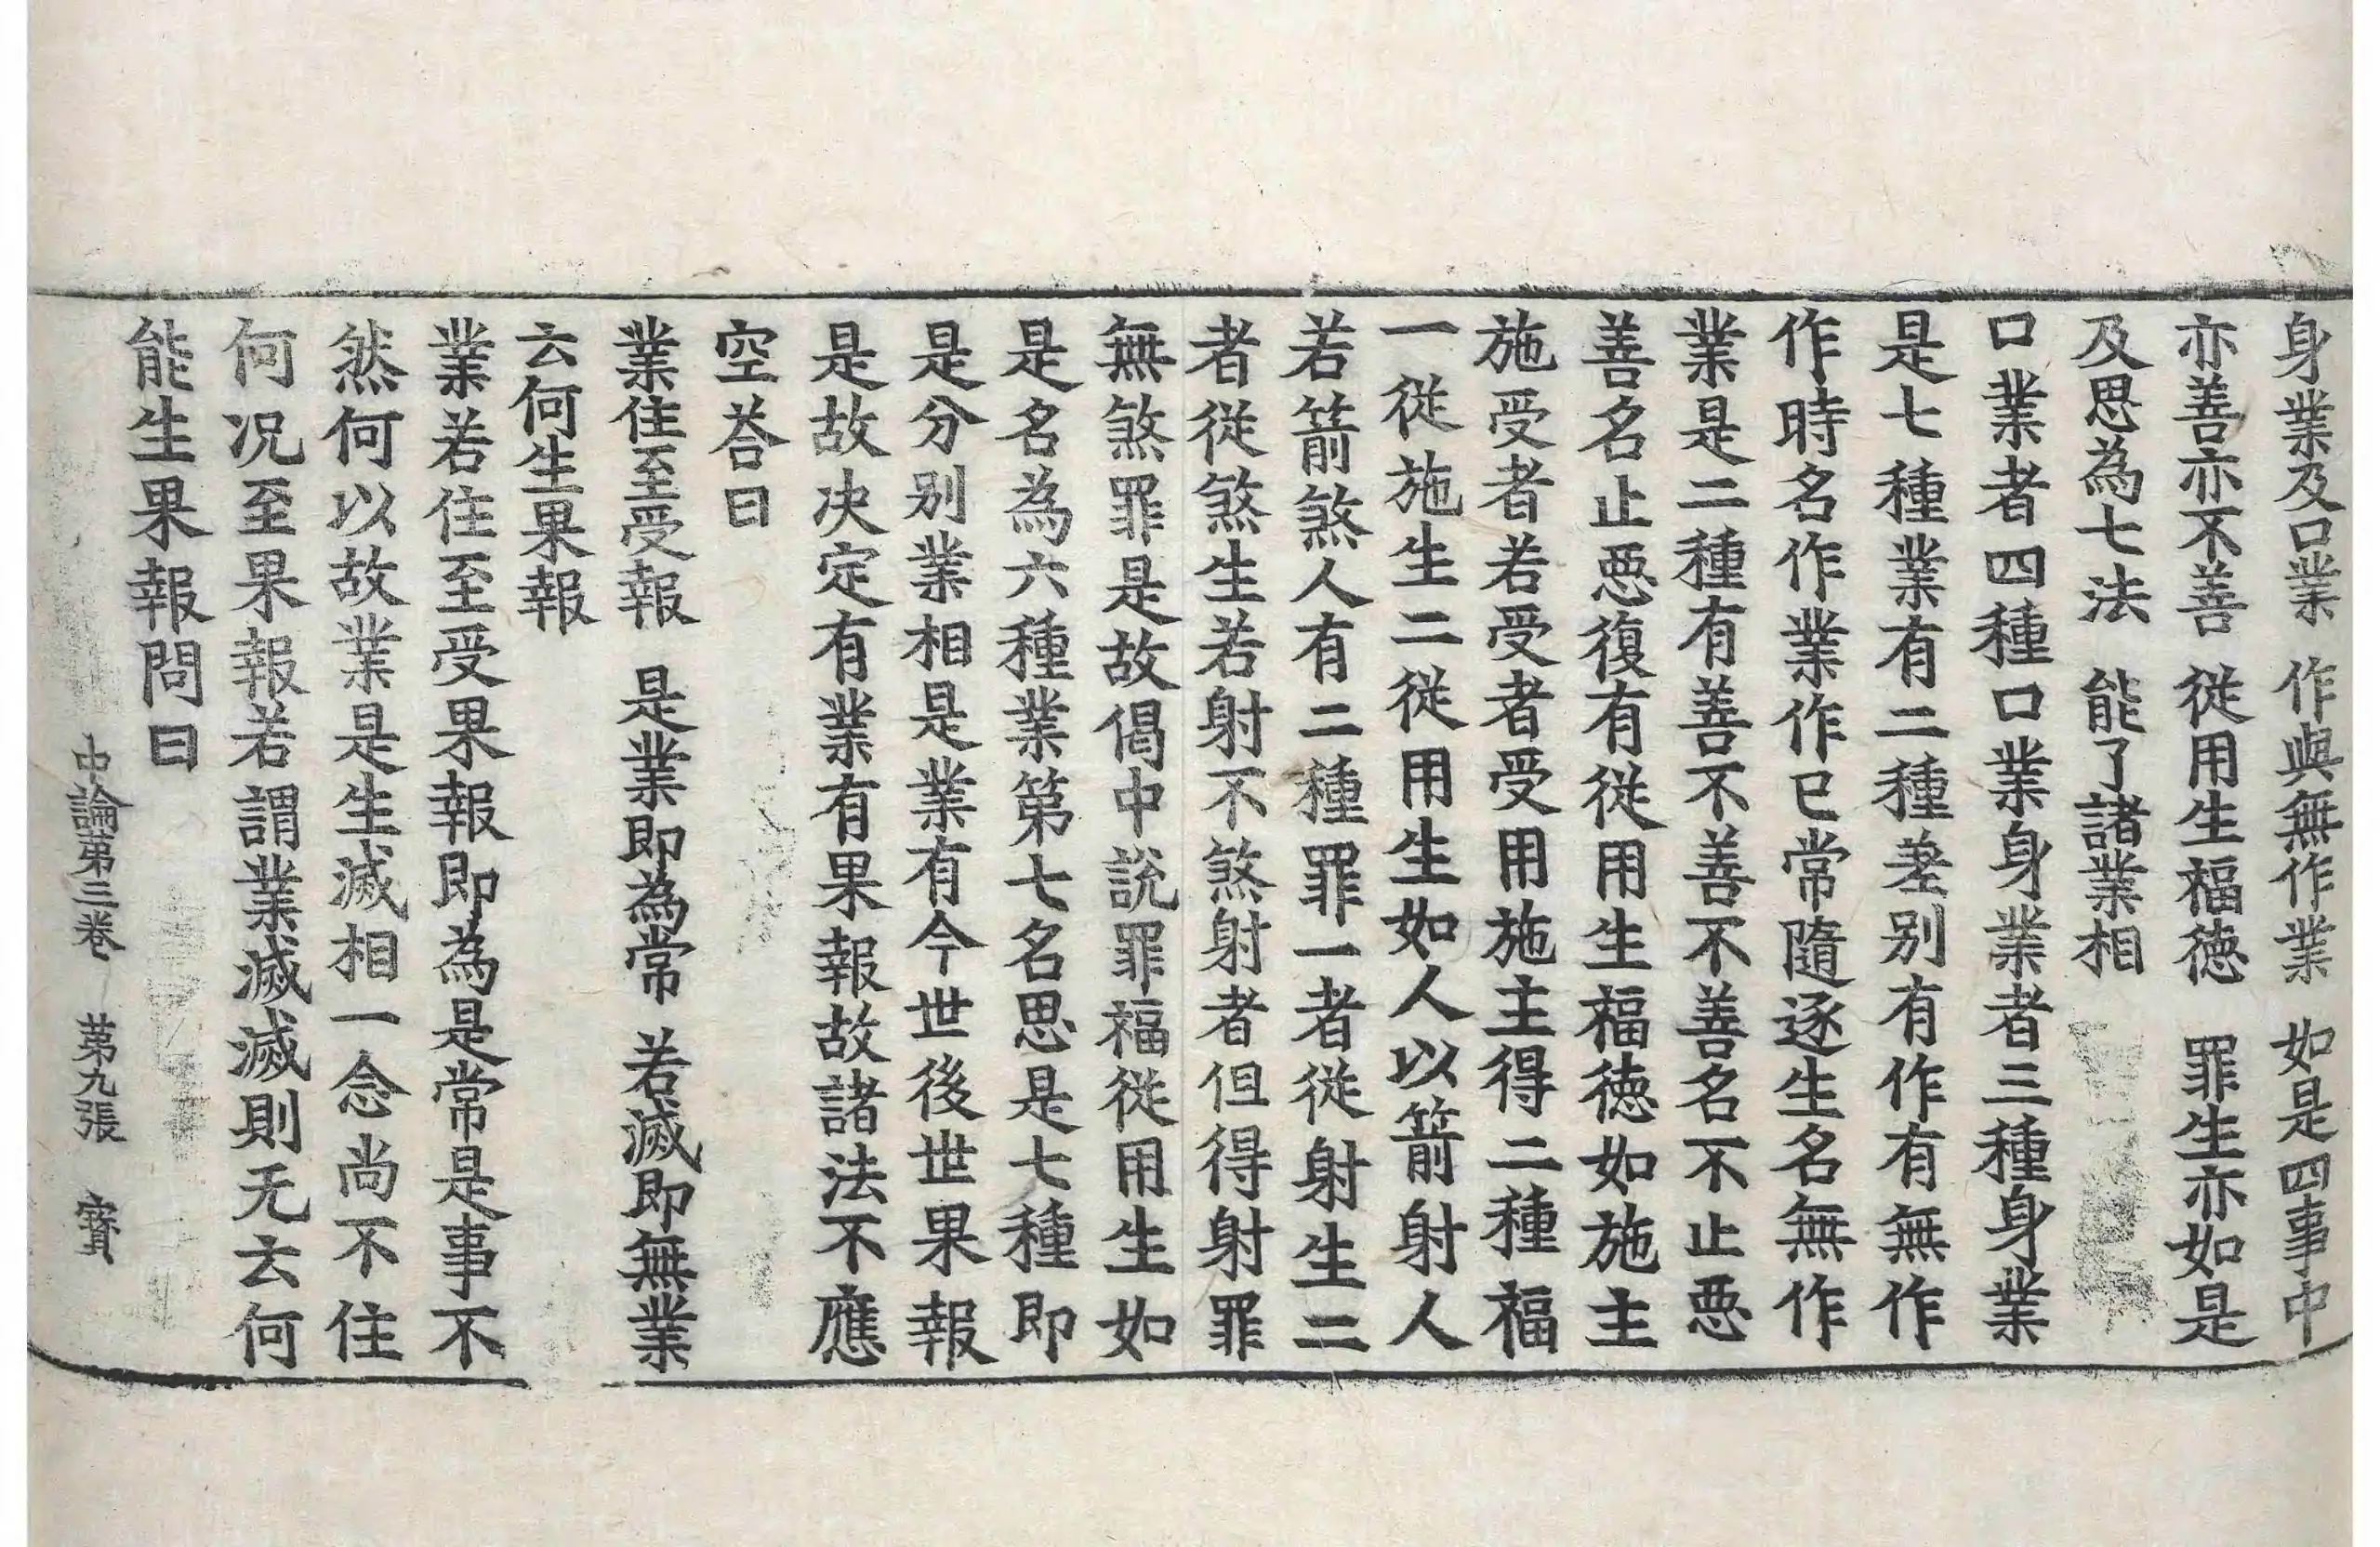 身業及口業　作與無作業　如是四事中
亦善亦不善　從用生福徳　罪生亦如是
及思為七法　能了諸業相
口業者四種口業身業者三種身業
是七種業有二種差別有作有無作
作時名作業作已常隨逐生名無作
業是二種有善不善不善名不止惡
善名止惡復有從用生福徳如施主
施受者若受者受用施主得二種福
一從施生二從用生如人以箭射人
若箭煞人有二種罪一者從射生二
者從煞生若射不煞射者但得射罪
無煞罪是故偈中說罪福從用生如
是名為六種業第七名思是七種即
是分別業相是業有今世後世果報
是故决定有業有果報故諸法不應
空荅曰
業住至受報　是業即為常　若滅即無業
云何生果報
業若住至受果報即為是常是事不
然何以故業是生滅相一念尚不住
何况至果報若謂業滅滅則无云何
能生果報問曰
中論第三卷　第九張　寳